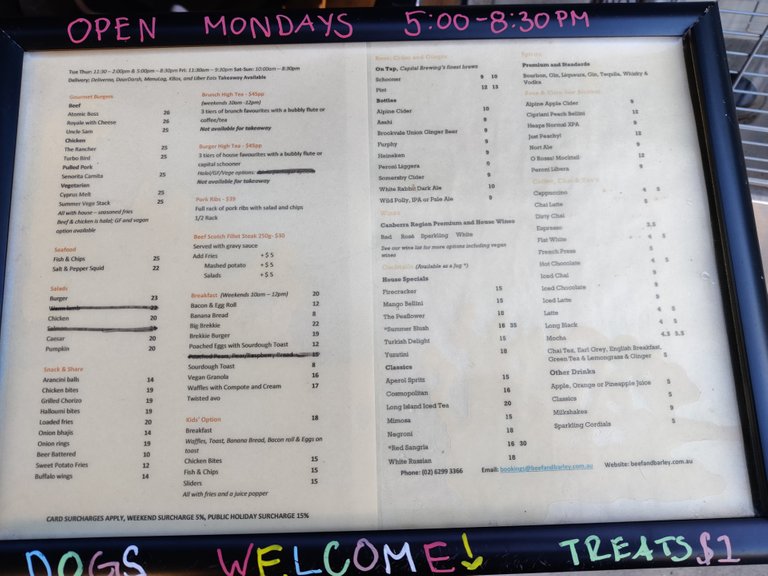 OPEN MONDAYS 5:00-8:30PM
Tue Thur: 11:30 – 2:00pm & 5:00pm – 8:30pm Fri: 11:30am – 9:30pm Sat-Sun: 10:00am – 8:30pm
Delivery: Deliveroo, DoorDash, MenuLog, Kiboz, and Uber Eats Takeaway Available
Gourmet Burgers
Beef
Atomic Boss 26
Royale with Cheese 26
Uncle Sam 25
Chicken
The Rancher 25
Turbo Bird 25
Pulled Pork
Senorita Carnita 25
Vegetarian
Cyprus Melt 25
Summer Vege Stack 25
All with house – seasoned fries
Beef & chicken is halal; GF and vegan
option available
Seafood
Fish & Chips 25
Salt & Pepper Squid 22
Salads
Burger 23
Chicken 20
Salmon
Caesar 20
Pumpkin 20
Snack & Share
Arancini balls 14
Chicken bites 19
Grilled Chorizo 19
Halloumi bites 19
Loaded fries 20
Onion bhajis 14
Onion rings 19
Beer Battered 10
Sweet Potato Fries 12
Buffalo wings 14
Brunch High Tea - $45pp
(weekends 10am -12pm)
3 tiers of brunch favourites with a bubbly flute or
coffee/tea
Not available for takeaway
Burger High Tea - $45pp
3 tiers of house favourites with a bubbly flute or
capital schooner
Halal/GF/Vege options
Not available for takeaway
Pork Ribs - $39
Full rack of pork ribs with salad and chips
1/2 Rack
Beef Scotch Fillet Steak 250g- $30
Served with gravy sauce
Add Fries + $ 5
Mashed potato + $ 5
Salads + $ 5
Breakfast (Weekends 10am – 12pm) 20
Bacon & Egg Roll 12
Banana Bread 8
Big Brekkie 22
Brekkie Burger 19
Poached Eggs with Sourdough Toast 12
Poached Pears, Pear/Raspberry Bread 15
Sourdough Toast 8
Vegan Granola 16
Waffles with Compote and Cream 17
Twisted avo
Kids' Option 18
Breakfast
Waffles, Toast, Banana Bread, Bacon roll & Eggs on
toast
Chicken Bites 15
Fish & Chips 15
Sliders 15
All with fries and a juice popper
CARD SURCHARGES APPLY, WEEKEND SURCHARGE 5%, PUBLIC HOLIDAY SURCHARGE 15%
Beer, Cider and Gingers
On Tap, Capital Brewing's finest brews
Schooner 9 10
Pint 12 13
Bottles
Alpine Cider 10
Asahi 9
Brookvale Union Ginger Beer 9
Furphy 9
Heineken 9
Peroni Liggera 9
Somersby Cider 9
White Rabbit Dark Ale 10
Wild Polly, IPA or Pale Ale 9
Wines
Canberra Region Premium and House Wines
Red Rosé Sparkling White
See our wine list for more options including vegan
wines
Cocktails (Available as a Jug *)
House Specials
Firecracker 15
Mango Bellini 15
The Peaflower 18
*Summer Blush 18 35
Turkish Delight 15
Yuzutini 18
Classics
Aperol Spritz 15
Cosmopolitan 16
Long Island Iced Tea 20
Mimosa 15
Negroni 18
*Red Sangria 16 30
White Russian 18
Spirits
Premium and Standards
Bourbon, Gin, Liqueurs, Gin, Tequila, Whisky &
Vodka
Alpine Apple Cider 9
Cipriani Peach Bellini 12
Heaps Normal XPA 9
Just Peachy! 12
Nort Ale 9
O Bossa! Mocktail 12
Peroni Libera 9
Cappuccino 4 5
Chai Latte 5
Dirty Chai
Espresso 3.5
Flat White 4 5
French Press 5
Hot Chocolate 4 5
Iced Chai 9
Iced Chocolate 9
Iced Latte 9
Latte 4 5
Long Black 4 5
Mocha 4.5 5.5
Chai Tea, Earl Grey, English Breakfast,
Green Tea & Lemongrass & Ginger 5
Other Drinks
Apple, Orange or Pineapple Juice 5
Classics 5
Milkshakes 9
Sparkling Cordials 5
Phone: (02) 6299 3366 Email: bookings@beefandbarley.com.au Website: beefandbarley.com.au
DOGS WELCOME! TREATS $1